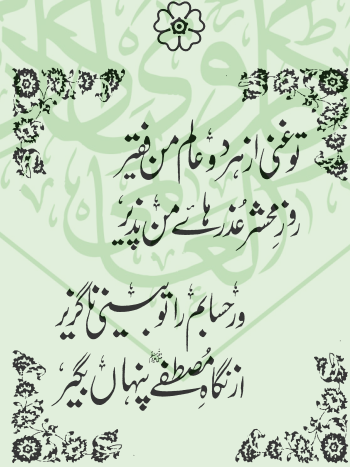 تو غنی از ہر دو عالم من فقیر
روزِ محشر عُذر ہائے من پذیر
ور حسابم را تو بینی ناگزیر
از نگاہِ مصطفےٰ ﷺ پنہاں بگیر